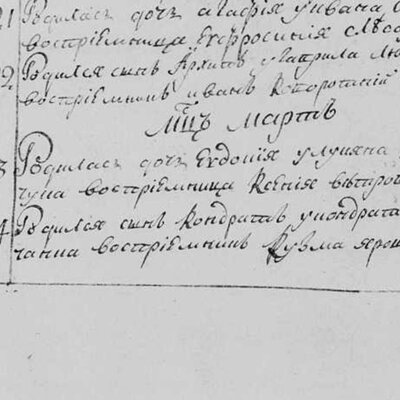 21 Родилась дочь агафия у ивана
восприемница ефросиния
22 Родился сынъ Архипъ у гаврила
восприемникъ иванъ
Мцъ мартъ
3 Родилась дочь евдокия у лукяна
чуна восприемница ксения
4 Родился сынъ кондратъ у кондрата
чанка восприемникъ кузма